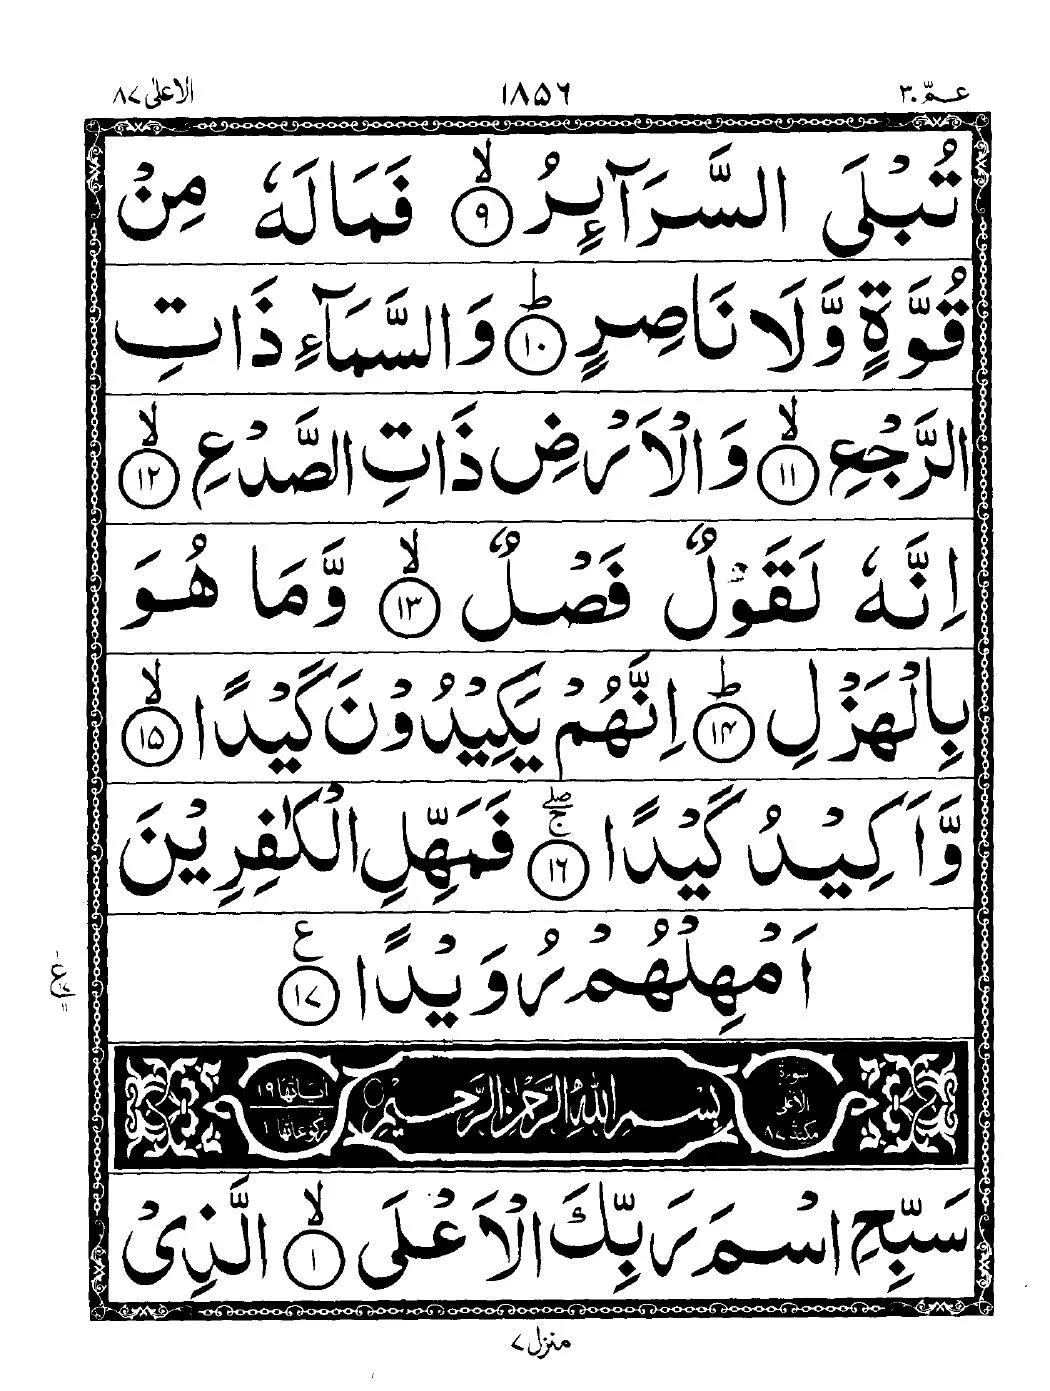 عمّ ٣٠ ١٨٥٦ الاعلى ٨٧
تُبْلَى السَّرَآىِٕرُ ۙ‏﴿۹﴾ فَمَا لَهٗ مِنْ
قُوَّةٍ وَّلَا نَاصِرٍ ؕ‏﴿۱۰﴾ وَالسَّمَآءِ ذَاتِ
الرَّجْعِ ۙ‏﴿۱۱﴾ وَالْاَرْضِ ذَاتِ الصَّدْعِ ۙ‏﴿۱۲﴾
اِنَّهٗ لَقَوْلٌ فَصْلٌ ۙ‏﴿۱۳﴾ وَّمَا هُوَ
بِالْهَزْلِ ؕ‏﴿۱۴﴾ اِنَّهُمْ يَكِيْدُوْنَ كَيْدًا ۙ‏﴿۱۵﴾
وَّاَكِيْدُ كَيْدًا ۖۚ‏﴿۱۶﴾ فَمَهِّلِ الْكٰفِرِيْنَ
اَمْهِلْهُمْ رُوَيْدًا ‏﴿۱۷﴾ ع
سورة الاعلى مكية ٨٧ بِسْمِ اللهِ الرَّحْمٰنِ الرَّحِيْمِ اٰياتها ١٩ ركوعاتها ١
سَبِّحِ اسْمَ رَبِّكَ الْاَعْلَى ۙ‏﴿۱﴾ الَّذِىْ
منزل ٧